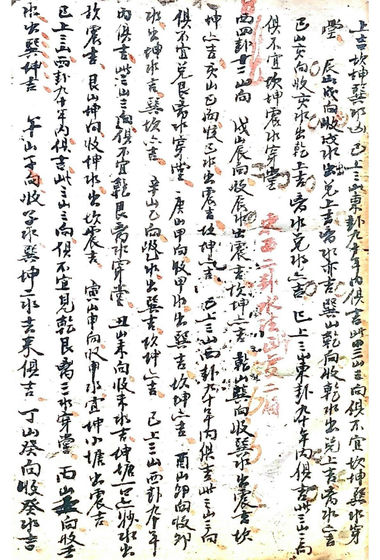 上吉坎坤巽卯凶 已上三山東卦九十年内俱吉此四三山三向俱不宜坎坤巽水穿
堂 辰山戌向收戌水出兌上吉 水亦吉 巽山乾向收乾水出兌上吉 水 吉
巳山亥向收亥水出乾上吉 水兌水 吉 已上三山東卦九十年内俱吉此三山三向
俱不宜坎坤震水穿堂
東西二卦水法 二
西四卦 三山向 戌山辰向收辰水出震吉坎坤 吉 乾山巽向收巽水出震吉坎
坤 吉 亥山巳向收巳水出震吉 坤 吉 已上三山西卦九十年内俱吉此三山三向
俱不宜兌艮 水穿堂 庚山甲向收甲水出巽吉坎坤 吉 酉山卯向收卯
水出坤水吉巽坎 吉 辛山乙向收乙水出巽吉坎坤 吉 已上三山西卦九十年
内俱吉此三山三向俱不宜乾艮 水穿堂 丑山未向收未水吉坤 一 水出
坎震吉 艮山坤向收坤水出坎震吉 寅山申向收申水宜坤小 出震吉
已上三山西卦九十年内俱吉此三山三向俱不宜見乾艮 三水穿堂 丙山壬向收壬
水出巽坤吉 午山子向收子水巽坤 水去來俱吉 丁山癸向收癸水吉